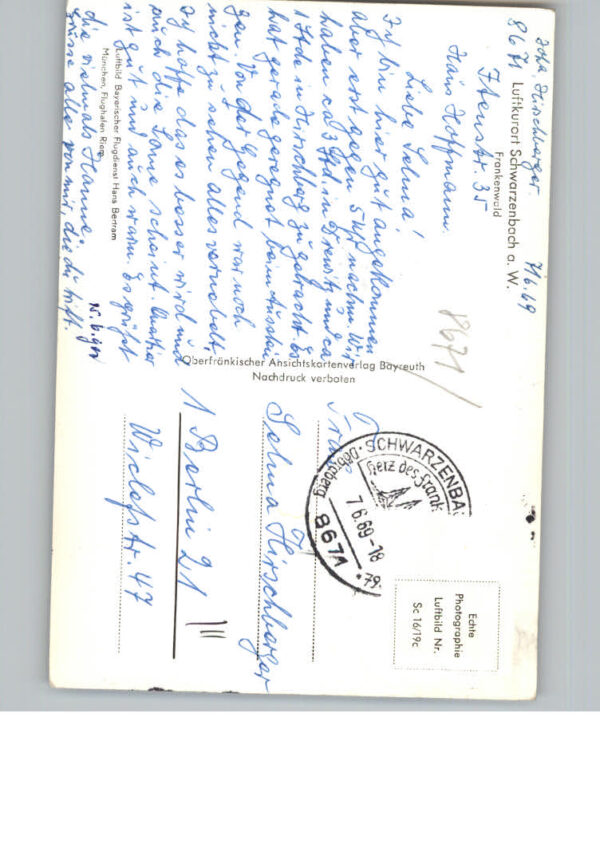 8671 Luftkurort Schwarzenbach a. W.
Frankenwald
7/6.69
Hans Hoffmann
35
Liebe Selma!
Ich bin hier gut angekommen
aber erst gegen 5 Uhr nachm. Wir
haben ca 3 Std. in und ca
1 Stde in Hirschberg zugebracht. Es
hat gerade geregnet beim Ausstei
gen. Von der Gegend war noch
nicht zu sehen alles vernebelt,
Ich hoffe das es besser wird und
auch die Sonne scheint.
ist gut und auch warm. Es grüßt
die vielmals Hanne.
Grüsse alle von mir, die du trifft.
Luftbild Bayerischer Flugdienst Hans Bertram
München, Flughafen Riem
Oberfränkischer Ansichtskartenverlag Bayreuth
Nachdruck verboten
8671
SCHWARZENBA
Herz des Frank
7.6.69-18
8671
Echte
Photographie
Luftbild Nr.
Sc 16/19c
Selma Hirschberger
1 Berlin 21
Wiclefstr. 47